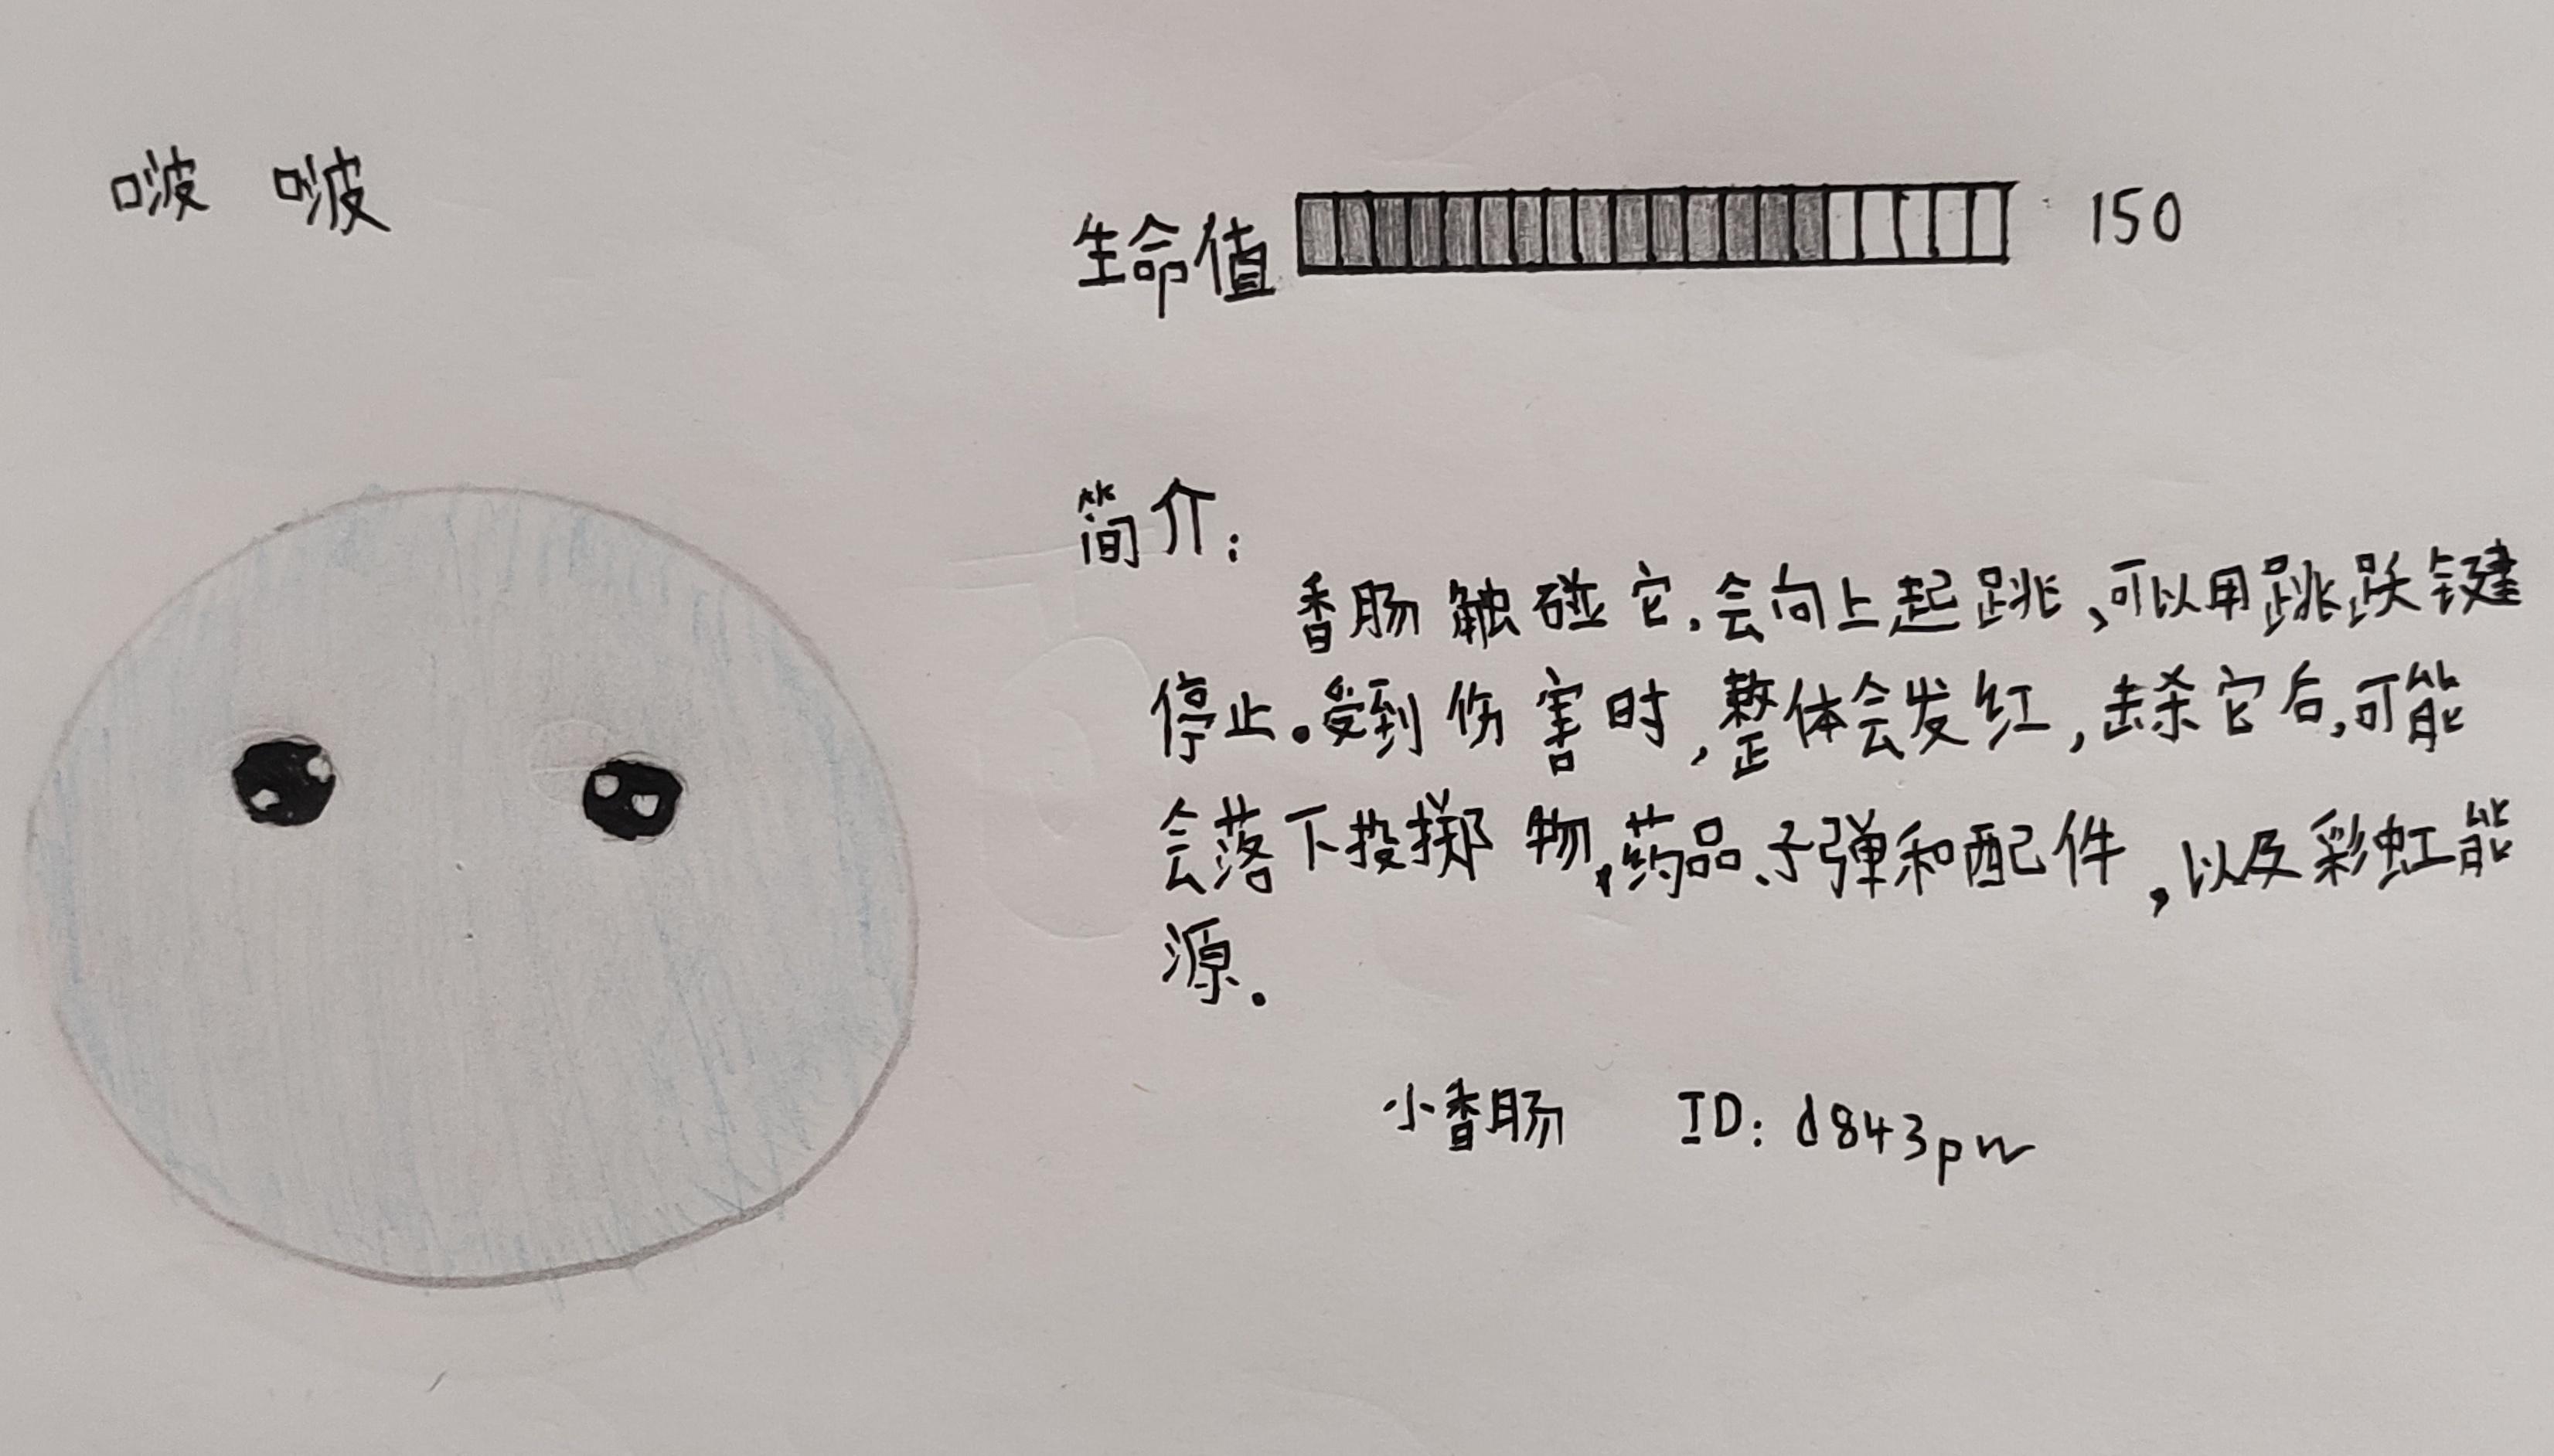 啵 啵
生命值 150
简介:
香肠触碰它,会向上起跳,可以用跳跃键
停止。受到伤害时,整体会发红,击杀它后,可能
会落下投掷物,药品、子弹和配件,以及彩虹能
源。
小香肠 ID: d843pw